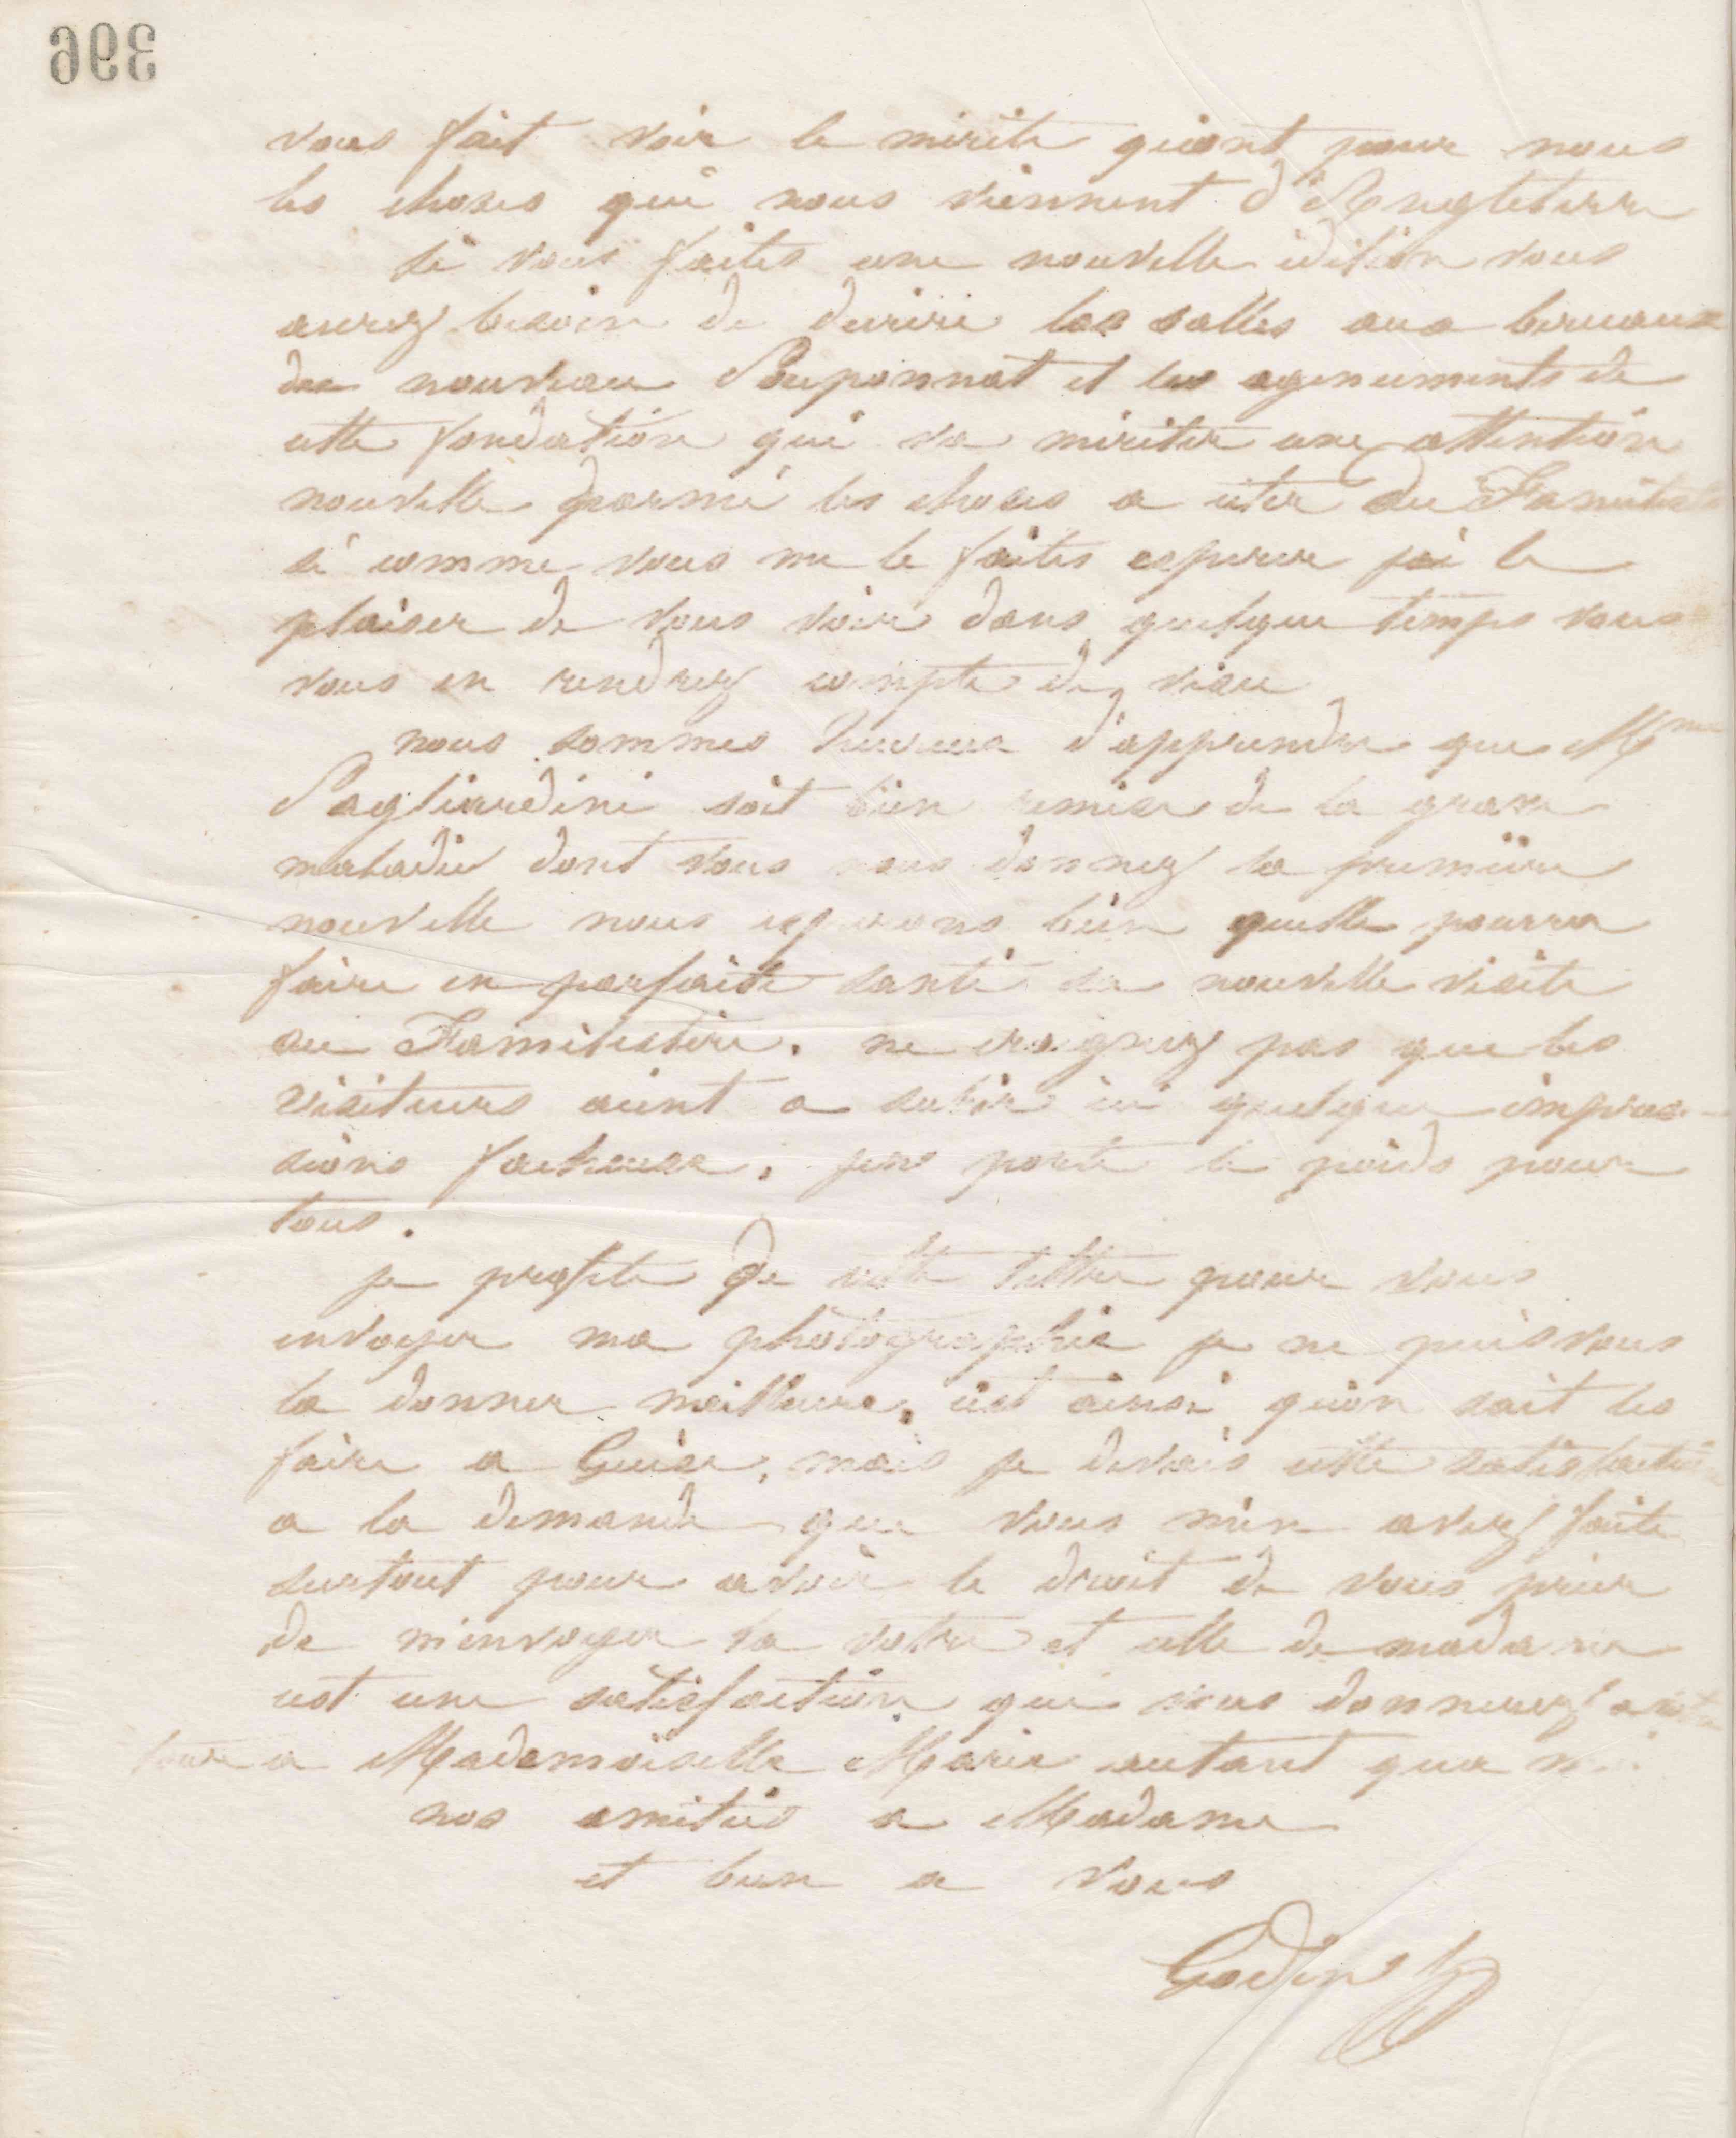 396
vous fait voir le mérite qu'ont pour nous
les choses qui nous viennent d'Angleterre
si vous faites une nouvelle édition vous
aurez besoin de décrire les salles aux berceaux
du nouveau Pouponnat et les agencements de
cette fondation qui va mériter une attention
nouvelle parmi les choses a citer du Familistère
si comme vous me le faites esperer j'ai le
plaisir de vous voir dans quelque temps vous
vous en rendrez compte de visu
nous sommes heureux d'apprendre que Mme
Pagliardini soit bien remise de la grave
maladie dont vous nous donnez la première
nouvelle nous esperons bien quelle pourra
faire en parfaite santé sa nouvelle visite
au Familistère. ne craignez pas que les
visiteurs aient a subir ici quelque impres-
sions facheuse, j'en porte le poids pour
tous.
je profite de cette lettre pour vous
envoyer ma photographie je ne puis vous
la donner meilleure, c'est ainsi qu'on sait les
faire a Guise, mais je devais cette satisfaction
a la demande que vous m'en avez faite
surtout pour avoir le droit de vous prier
de m'envoyer la votre et celle de madame
c'est une satisfaction que vous donnerez
a Mademoiselle Marie autant qu'a moi
nos amitiés a Madame
et bien a vous
Godin